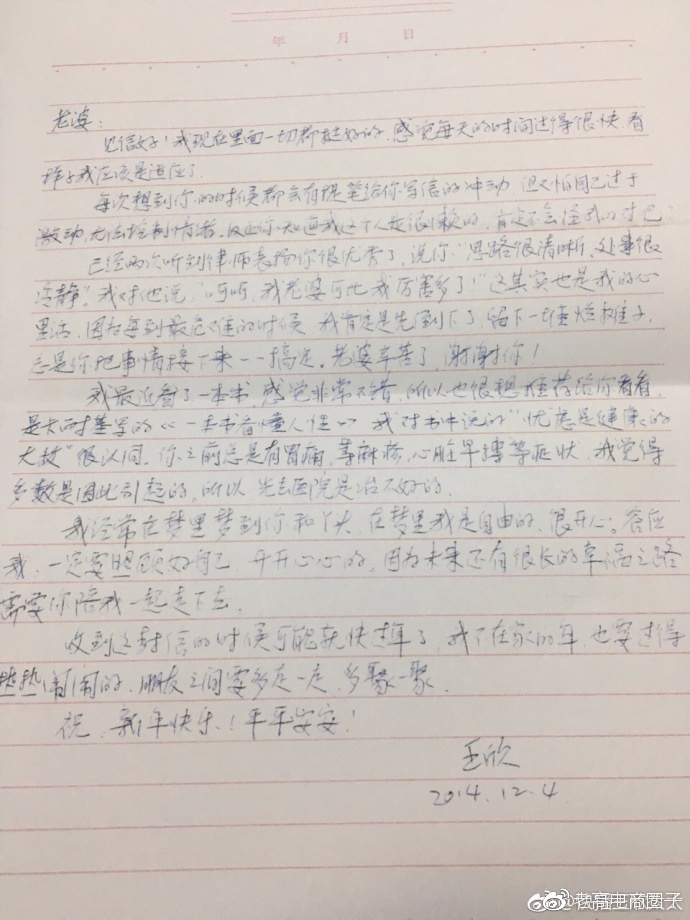 年 月 日
老婆：
见信好！我现在里面一切都挺好的，感觉每天的时间过得很快，看
样子我应该是适应了。
每次想到你的时候都会有提笔给你写信的冲动，但又怕自己过于
激动，无法控制情绪，反正你知道我这个人是很懒的，肯定不会怪我的对吧
已经两次听到律师表扬你很优秀了，说你“思路很清晰，处事很
冷静”，我对他说“呵呵，我老婆可比我厉害多了！”这其实也是我的心
里话，因为每到最危难的时候，我肯定是先倒下了，留下一堆烂摊子，
总是你把事情接下来一一搞定，老婆辛苦了，谢谢你！
我最近看了一本书，感觉非常不错，所以也很想推荐给你看看，
是卡耐基写的《一本书看懂人性》我对书中说的“忧虑是健康的
大敌”很认同，你之前总是有胃痛，荨麻疹，心脏早搏等症状，我觉得
多数是因此引起的，所以光去医院是治不好的。
我经常在梦里梦到你和丫头，在梦里我是自由的，很开心。答应
我，一定要照顾好自己，开开心心的，因为未来还有很长的幸福之路
需要你陪我一起走下去。
收到这封信的时候可能就快过年了，我不在家的年，也要过得
热热闹闹的，朋友之间要多走一走，多聚一聚。
祝：新年快乐！平平安安！
王欣
2014.12.4
@老高电商圈子